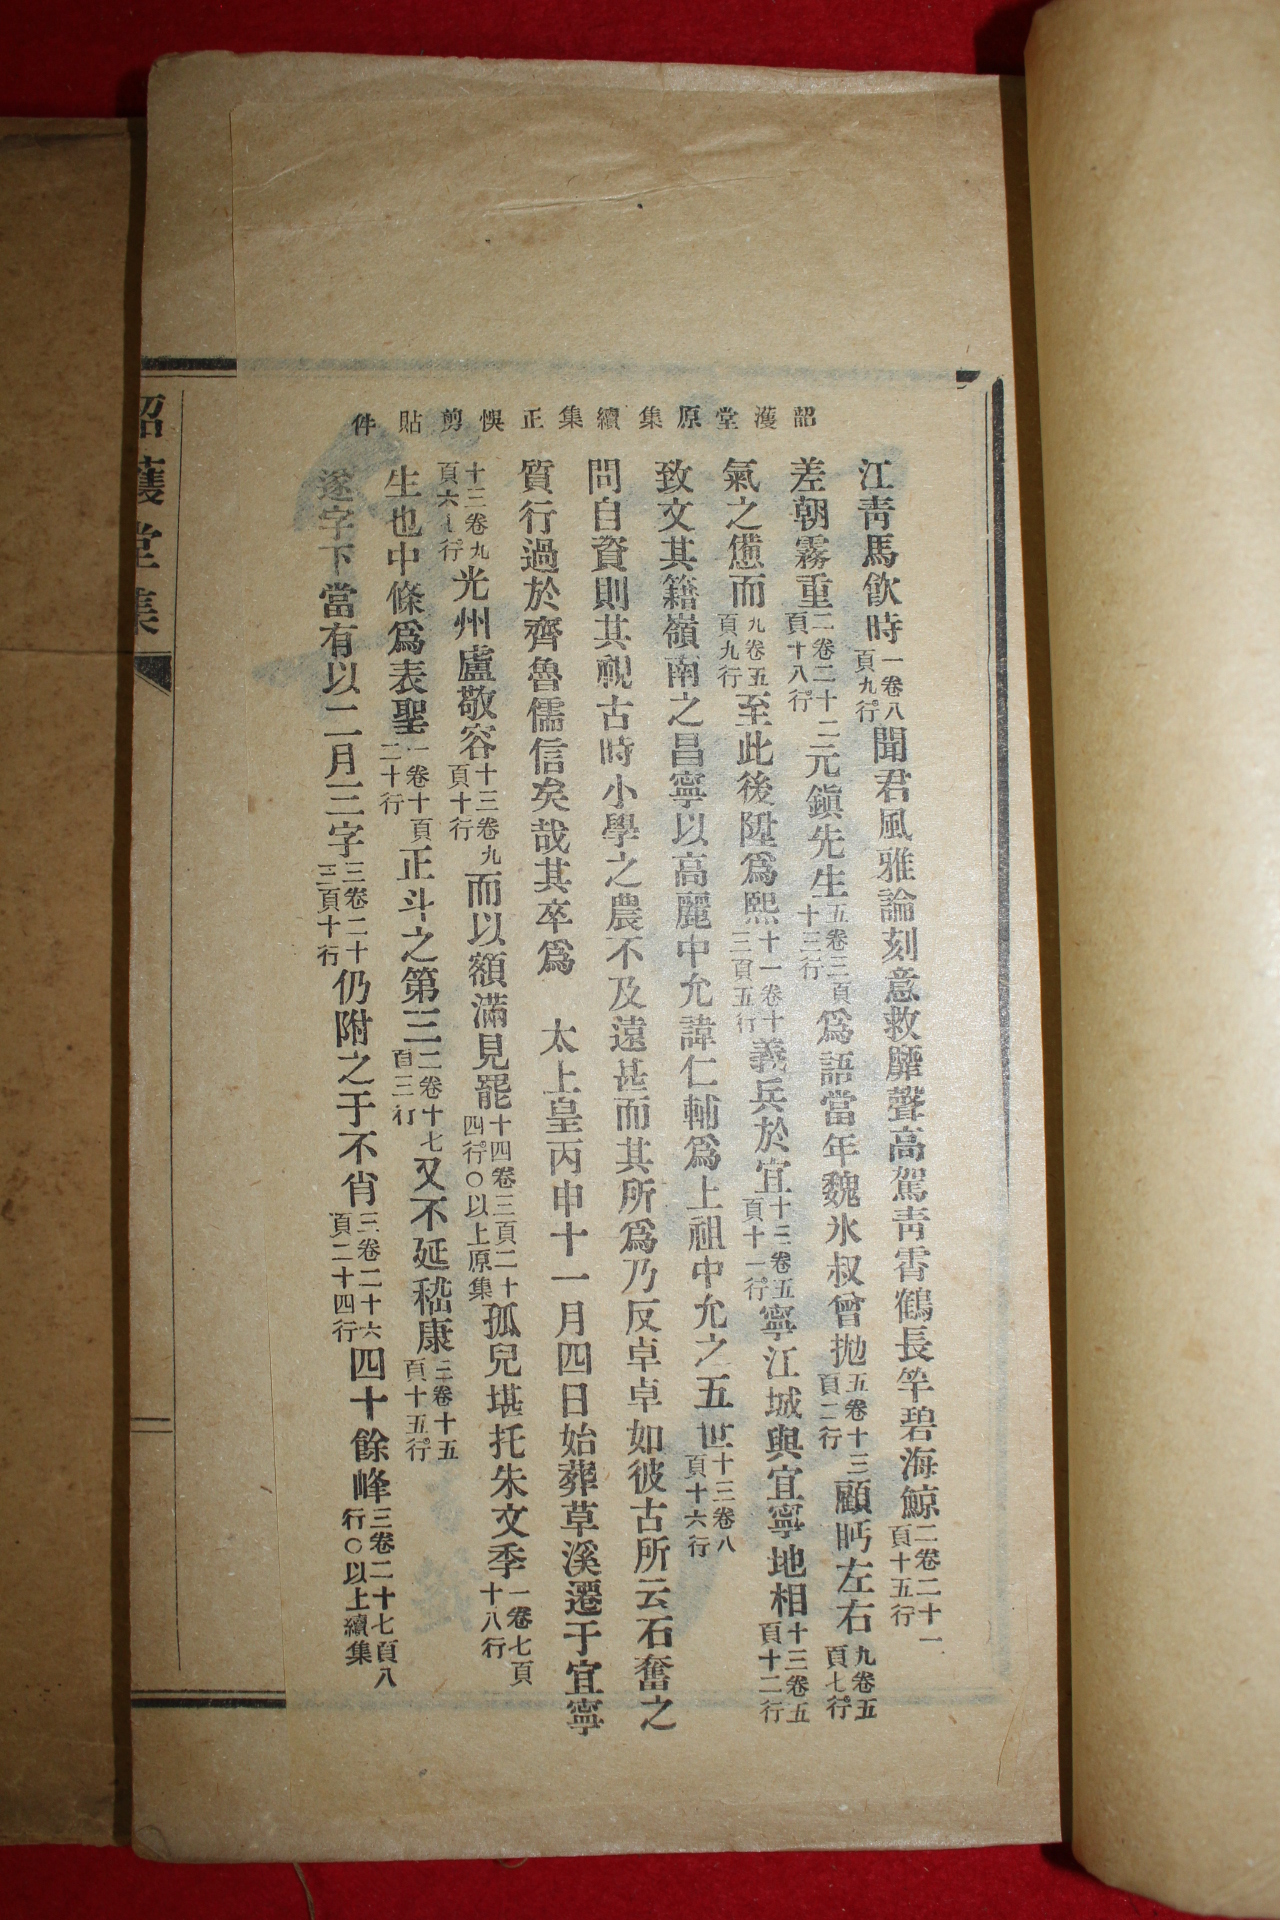 韶濩堂原集續集正悞剪貼件
江靑馬飮時一卷八頁九行聞君風雅論刻意救靡聲高駕靑霄鶴長竿碧海鯨二卷二十一頁十五行
差朝霧重二卷二十二頁十八行元鎭先生五卷三頁十三行爲語當年魏氷叔曾抛五卷十三頁二行顧眄左右九卷五頁七行
氣之憊而九卷五頁九行至此後陞爲熙十一卷十三頁五行義兵於宜十三卷五頁十一行寧江城與宜寧地相十三卷五頁十二行
致文其籍嶺南之昌寧以高麗中允諱仁輔爲上祖中允之五世十三卷八頁十六行
問自資則其視古時小學之農不及遠甚而其所爲乃反卓卓如彼古所云石奮之
質行過於齊魯儒信矣哉其卒爲 太上皇丙申十一月四日始葬草溪遷于宜寧
十三卷九頁六行光州盧敬容十三卷九頁十行而以額滿見罷十四卷三頁二十四行○以上原集孤兒堪托朱文季一卷七頁十八行
生也中條爲表聖一卷十頁二十行正斗之第三二卷十七頁三行又不延嵇康三卷十五頁十五行
遂字下當有以二月三字三卷二十三頁十行仍附之于不肖三卷二十六頁二十四行四十餘峰三卷二十七頁八行○以上續集
韶濩堂集